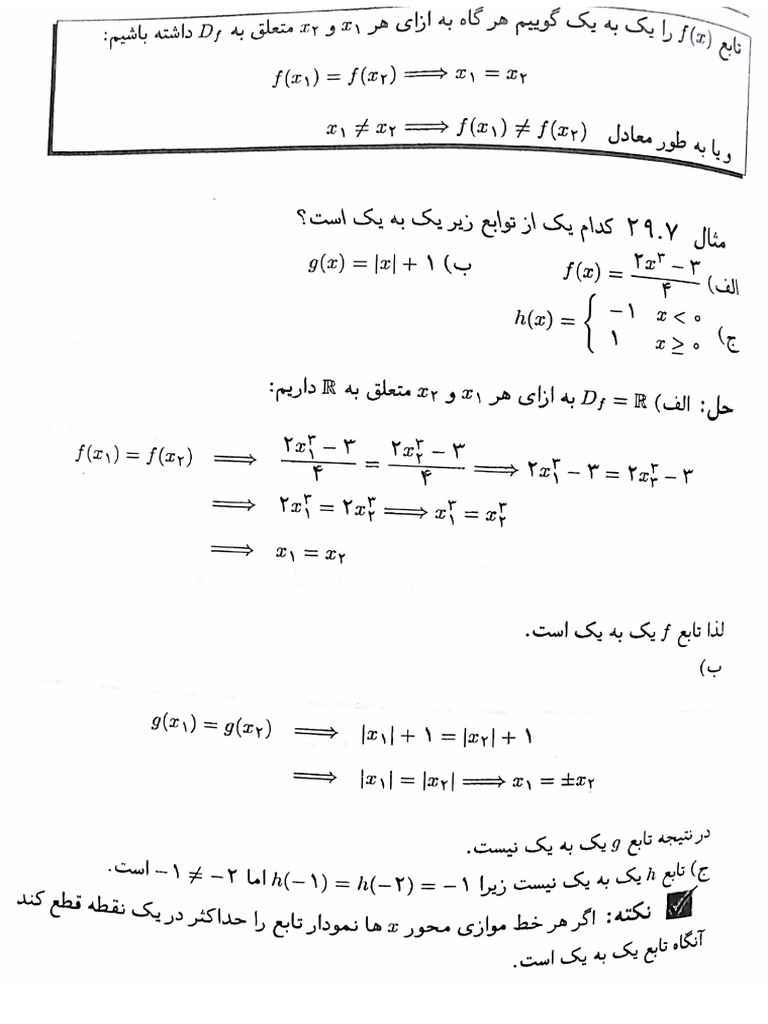 تابع f(x) را یک به یک گوییم هر گاه به ازای هر x۱ و x۲ متعلق به Df داشته باشیم:
f(x۱) = f(x۲) ⟹ x۱ = x۲
و یا به طور معادل x۱ ≠ x۲ ⟹ f(x۱) ≠ f(x۲)
مثال ۲۹.۷ کدام یک از توابع زیر یک به یک است؟
الف) f(x) = (۲x³ − ۳)/۴ ب) g(x) = |x| + ۱
ج) h(x) = { −۱ x < ۰
۱ x ≥ ۰
حل: الف) Df = ℝ به ازای هر x۱ و x۲ متعلق به ℝ داریم:
f(x۱) = f(x۲) ⟹ (۲x۱³ − ۳)/۴ = (۲x۲³ − ۳)/۴ ⟹ ۲x۱³ − ۳ = ۲x۲³ − ۳
⟹ ۲x۱³ = ۲x۲³ ⟹ x۱³ = x۲³
⟹ x۱ = x۲
لذا تابع f یک به یک است.
ب)
g(x۱) = g(x۲) ⟹ |x۱| + ۱ = |x۲| + ۱
⟹ |x۱| = |x۲| ⟹ x۱ = ±x۲
در نتیجه تابع g یک به یک نیست.
ج) تابع h یک به یک نیست زیرا h(−۱) = h(−۲) = −۱ اما −۱ ≠ −۲ است.
نکته: اگر هر خط موازی محور x ها نمودار تابع را حداکثر در یک نقطه قطع کند
آنگاه تابع یک به یک است.